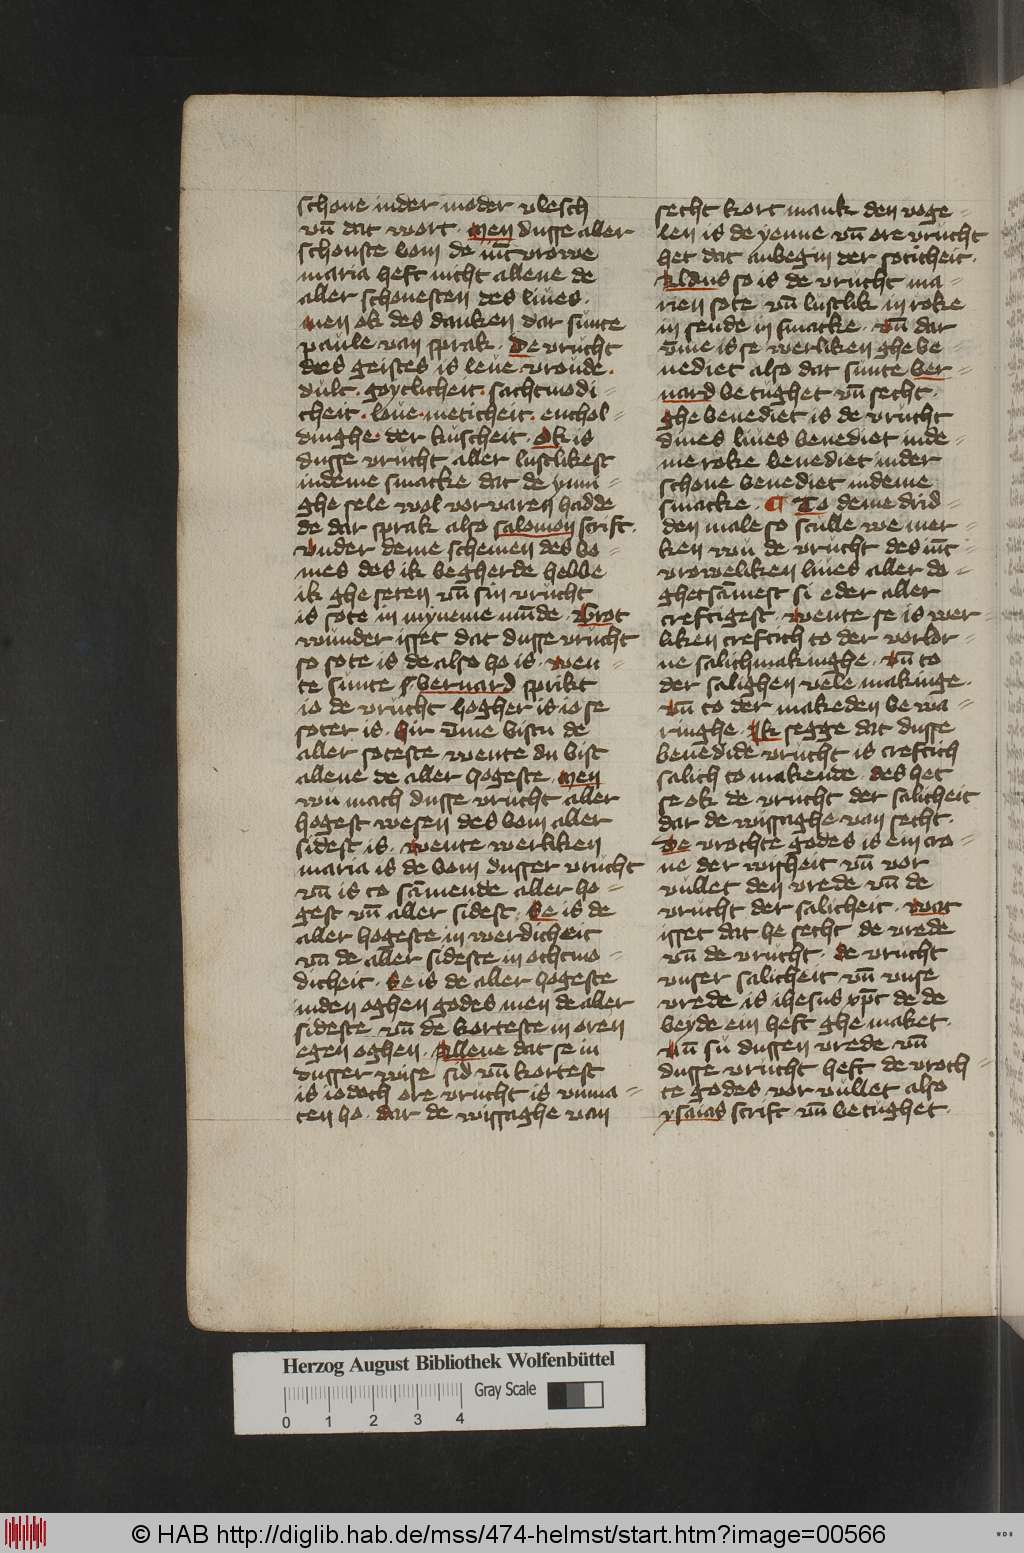 schone in der moder vlesch
vn̄ dat wort · Men dusse aller
schonste bom de iūcvrowe
maria heft nicht allene de
aller schonesten des liues ·
Men ok des danken dar sunte
paule van sprak · De vrucht
des geistes is leue · vroude ·
dult · goytlicheit · sachtmodi =
cheit · loue · meticheit · enthol =
dinghe · der kuscheit · Ok is
dusse vrucht aller lustlikest
in deme smacke dat de ynni =
ghe sele wol vorvaren hadde
de dar sprak also salomon scrift ·
Vnder deme schemen des bo =
mes des ik begherde hebbe
ik ghe seten vn̄ sin vrucht
is sote in myneme mūde · Grot
wunder isset dat dusse vrucht
so sote is de also ho is · Wen =
te sunte bernard sprikt
io de vrucht hogher is io se
soter is · Hir v̄me bistu de
aller soteste wente du bist
allene de aller hogeste · Men
wu mach dusse vrucht aller
hogest wesen des bom aller
sidest is · Wente werliken
maria is de bom dusser vrucht
vn̄ is to sāmende aller ho =
gest vn̄ aller sidest · Se is de
aller hogeste in werdicheit
vn̄ de aller sideste in othmo =
dicheit · Se is de aller hogeste
in den oghen godes men de aller
sideste vn̄ de korteste in oren
egen oghen · Allene dat se in
dusser wise sid vn̄ kortest
is iodoch ore vrucht is vnma =
ten ho · dar de wissaghe van
secht kort mank den voge =
len is de yenne vn̄ ore vrucht
het dat anbegin der soticheit ·
Aldus so is de vrucht ma =
rien sote vn̄ lustlik in roke
in sende in smacke · Vn̄ dar
v̄me is se werliken ghe be =
nediet also dat sunte ber =
nard be tughet vn̄ secht ·
Ghe benediet is de vrucht
dines liues benediet in de =
me roke benediet in der
schone benediet in deme
smacke · ¶ To deme drid =
den male so sculle we mer =
ken wu de vrucht des iūc =
vroweliken liues aller do =
ghetsāmest si eder aller
creftigest · Wente se is wer =
liken creftich to der vorlor =
ne salichmakinghe · Vn̄ to
der salighen vele makinge ·
Vn̄ to der makeden be wa =
ringhe · Ik segge dat dusse
benedide vrucht is creftich
salich to makende · des het
se ok de vrucht der salicheit
dar de wissaghe van secht ·
De vrochte godes is ein cro =
ne der wisheit vn̄ vor
vullet den vrede vn̄ de
vrucht der salicheit · Wat
isset dat he secht de vrede
vn̄ de vrucht · De vrucht
vnser salicheit vn̄ vnse
vrede is ihesus xp̄c de de
beyde ein heft ghe maket ·
Vn̄ su dussen vrede vn̄
dusse vrucht heft de vroch =
te godes vor vullet also
ysaias scrift vn̄ be tughet ·
Herzog August Bibliothek Wolfenbüttel
Gray Scale
0 1 2 3 4
© HAB http://diglib.hab.de/mss/474-helmst/start.htm?image=00566
WDB